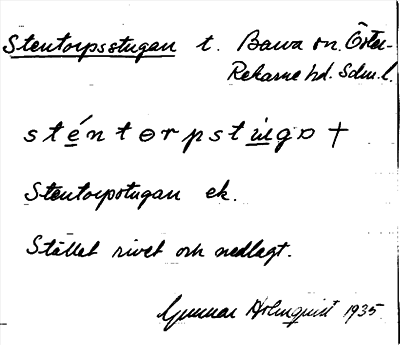 Stentorpsstugan t. Barva sn. Öster-
Rekarne hd. Sdm. l.
sténtɵrpstùgɒ +
Stentorpstugan ek.
Stället rivet och nedlagt.
Gunnar Holmquist 1935